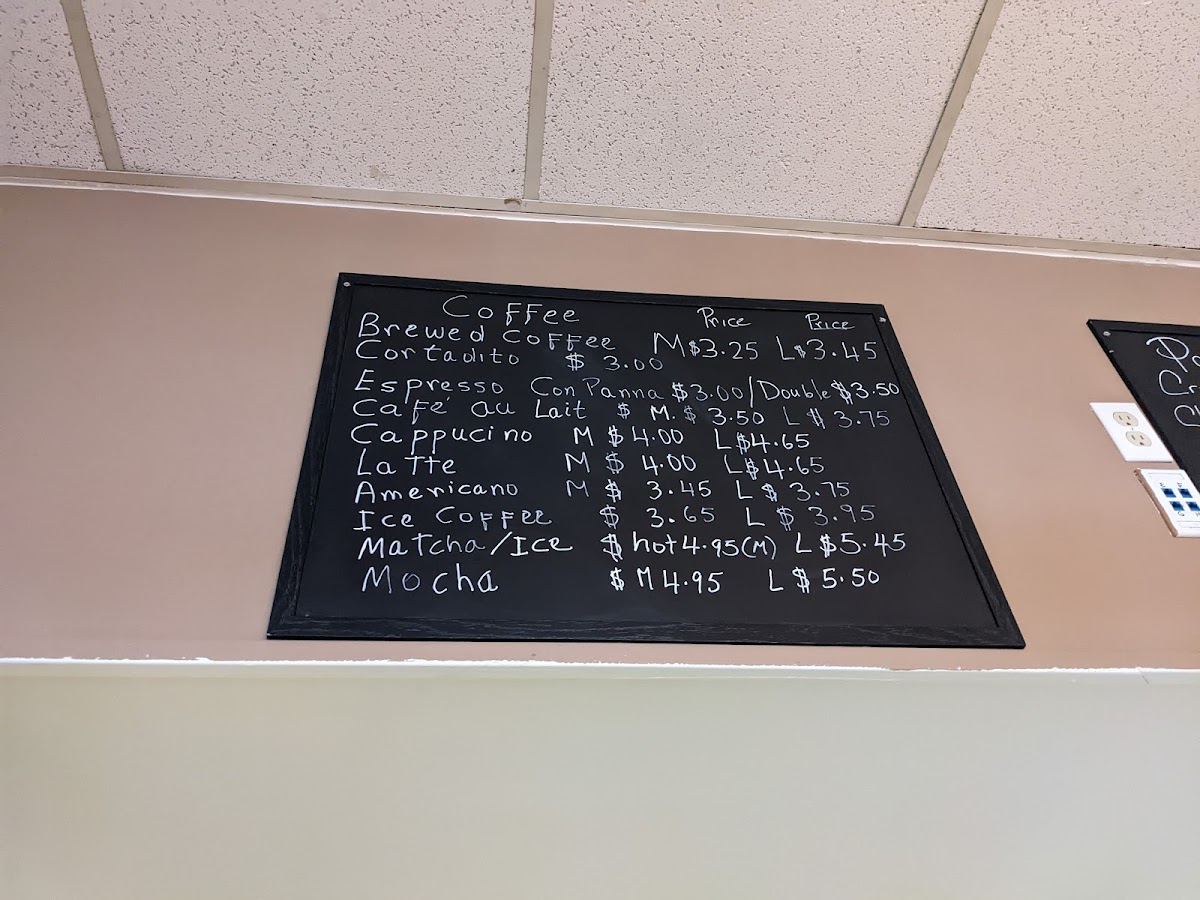 Coffee Price Price
Brewed Coffee M $3.25 L $3.45
Cortadito $ 3.00
Espresso Con Panna $3.00/Double $3.50
Café au Lait $ M. $ 3.50 L $ 3.75
Cappucino M $ 4.00 L $4.65
Latte M $ 4.00 L $4.65
Americano M $ 3.45 L $ 3.75
Ice Coffee $ 3.65 L $ 3.95
Matcha/Ice $ hot 4.95(M) L $5.45
Mocha $ M 4.95 L $ 5.50